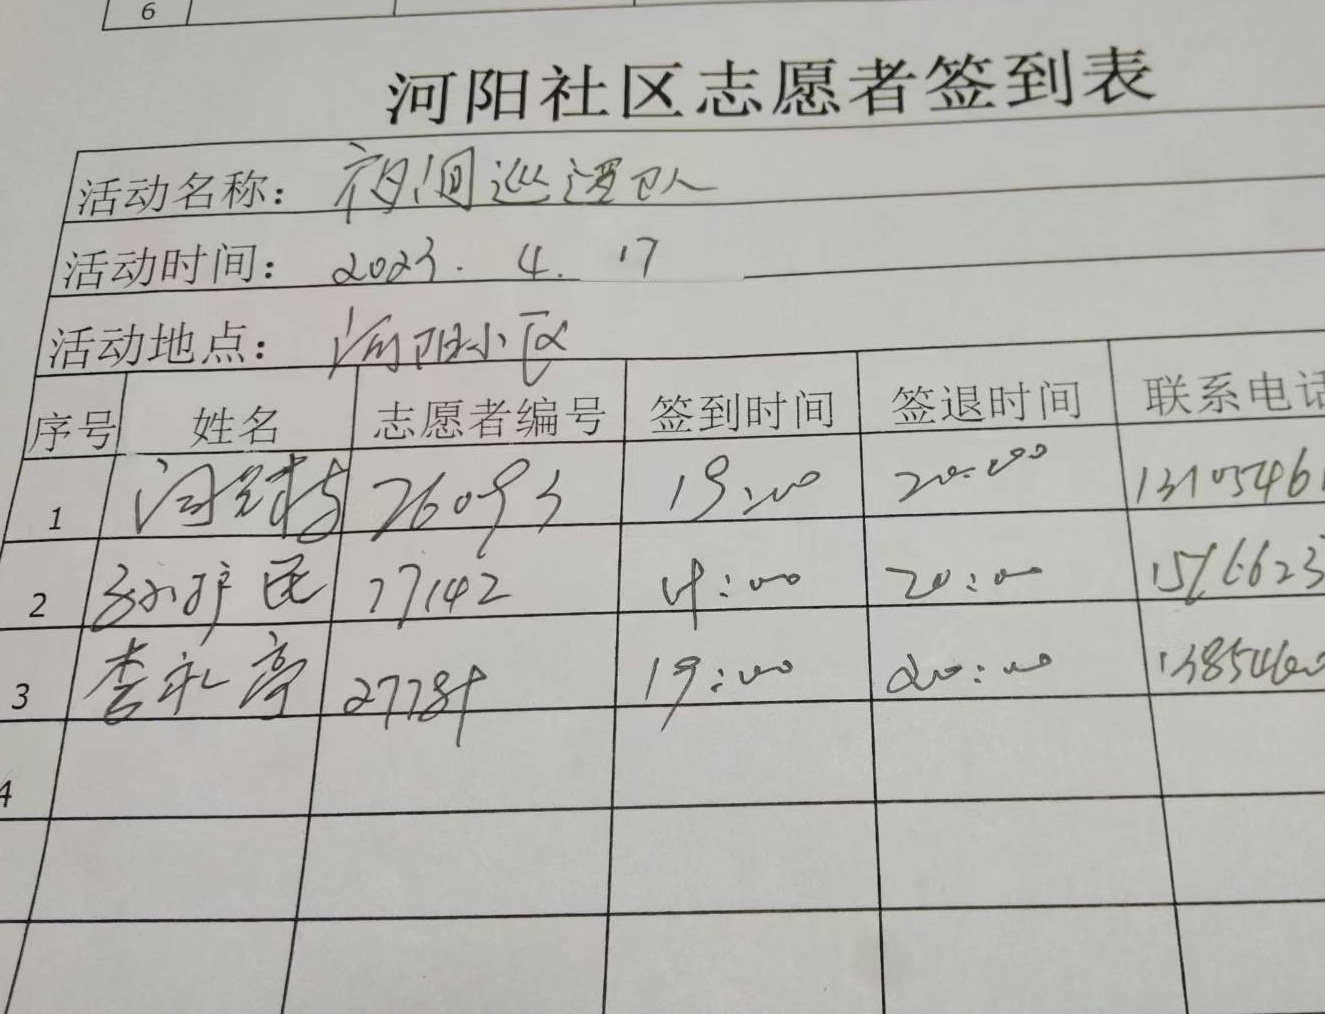 6
河阳社区志愿者签到表
活动名称: 夜间巡逻队
活动时间: 2023. 4. 17
活动地点: 河阳小区
序号 姓名 志愿者编号 签到时间 签退时间 联系电话
1 76093 19:00 20:00 13105461
2 民 77142 19:00 20:00 1576623
3 李礼亮 27789 19:00 20:00 1385460
4